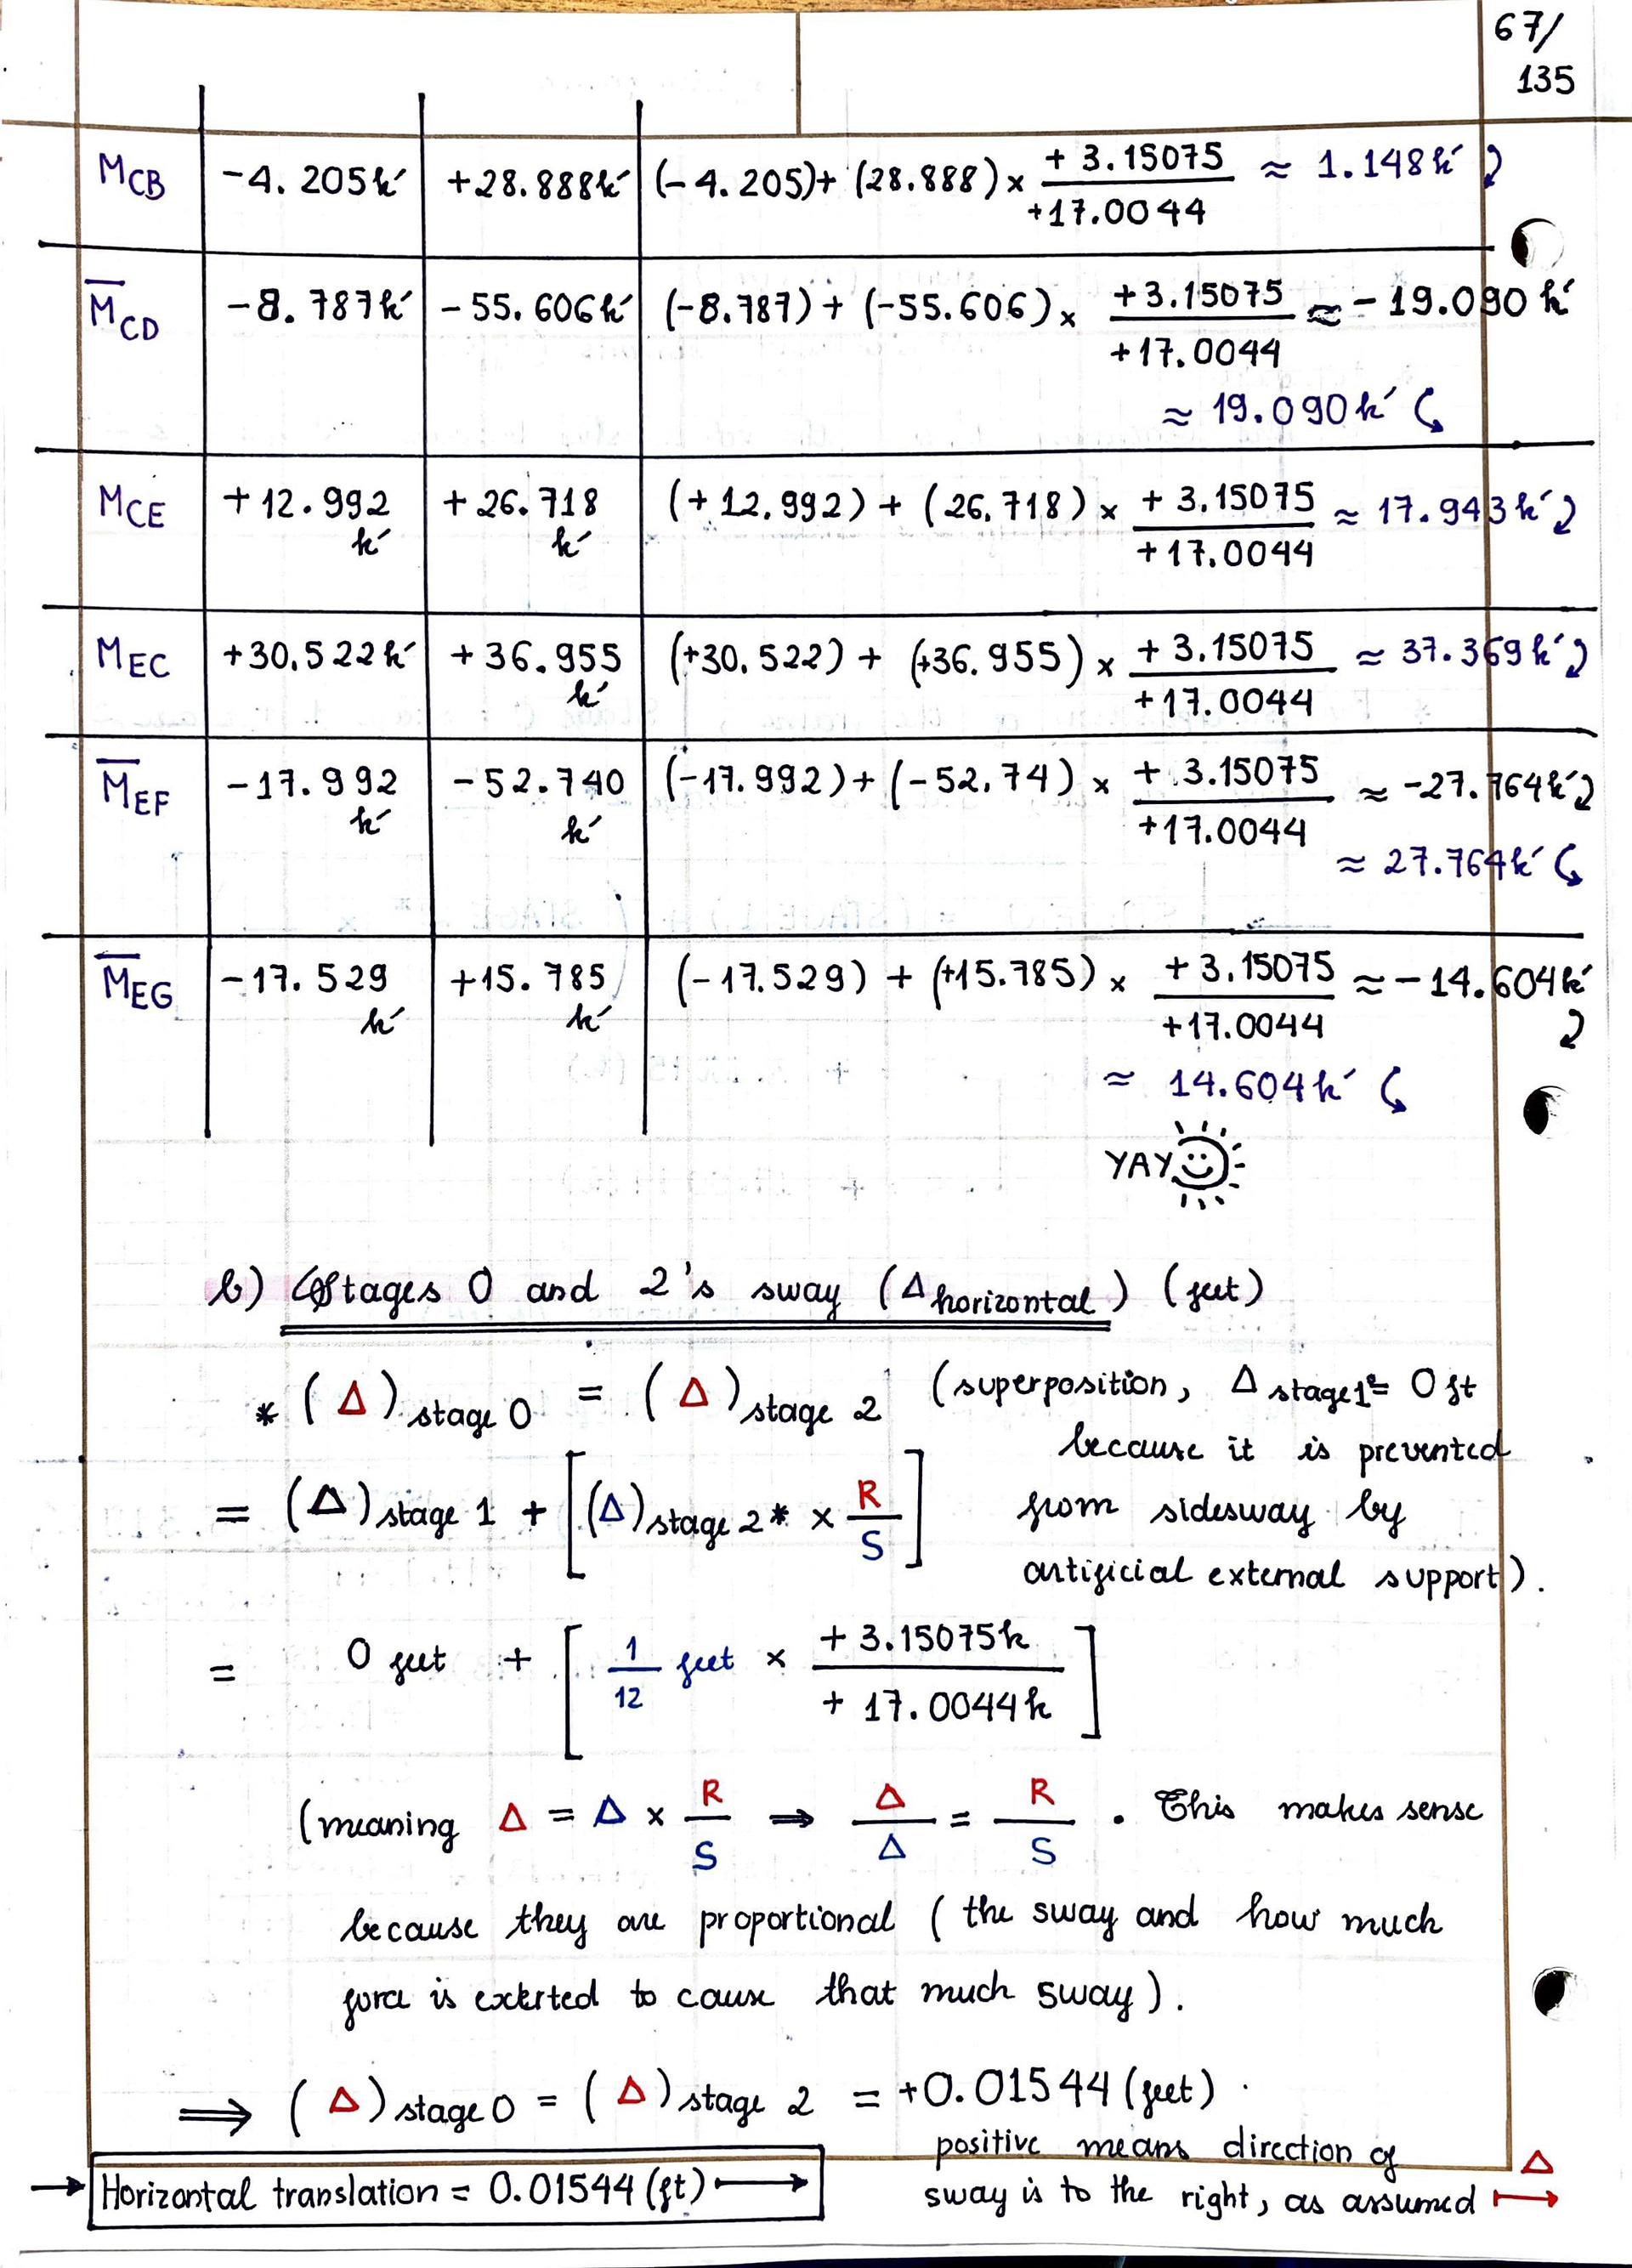 67/
135
M_CB | -4.205k' | +28.888k' | (-4.205)+(28.888) × +3.15075 / +17.0044 ≈ 1.148k' ↷
M̅_CD | -8.787k' | -55.606k' | (-8.787) + (-55.606) × +3.15075 / +17.0044 ≈ -19.090 k'
≈ 19.090k' ↶
M_CE | +12.992 k' | +26.718 k' | (+12.992) + (26.718) × +3.15075 / +17.0044 ≈ 17.943k' ↷
M_EC | +30.522k' | +36.955 k' | (+30.522) + (+36.955) × +3.15075 / +17.0044 ≈ 37.369k' ↷
M̅_EF | -17.992 k' | -52.740 k' | (-17.992)+(-52.74) × +3.15075 / +17.0044 ≈ -27.764k' ↷
≈ 27.764k' ↶
M̅_EG | -17.529 k' | +15.785 k' | (-17.529) + (+15.785) × +3.15075 / +17.0044 ≈ -14.604k' ↷
≈ 14.604k' ↶
YAY
b) Stages 0 and 2's sway (Δ horizontal) (feet)
* (Δ) stage 0 = (Δ) stage 2 (superposition, Δ stage 1 = 0 ft
because it is prevented
= (Δ) stage 1 + [(Δ) stage 2* × R/S] from sidesway by
artificial external support).
= 0 feet + [1/12 feet × +3.15075k / +17.0044k]
(meaning Δ = Δ × R/S ⇒ Δ/Δ = R/S . This makes sense
because they are proportional (the sway and how much
force is exerted to cause that much sway).
⇒ (Δ) stage 0 = (Δ) stage 2 = +0.01544 (feet).
positive means direction of
→ Horizontal translation = 0.01544 (ft) ↦
sway is to the right, as assumed Δ ↦